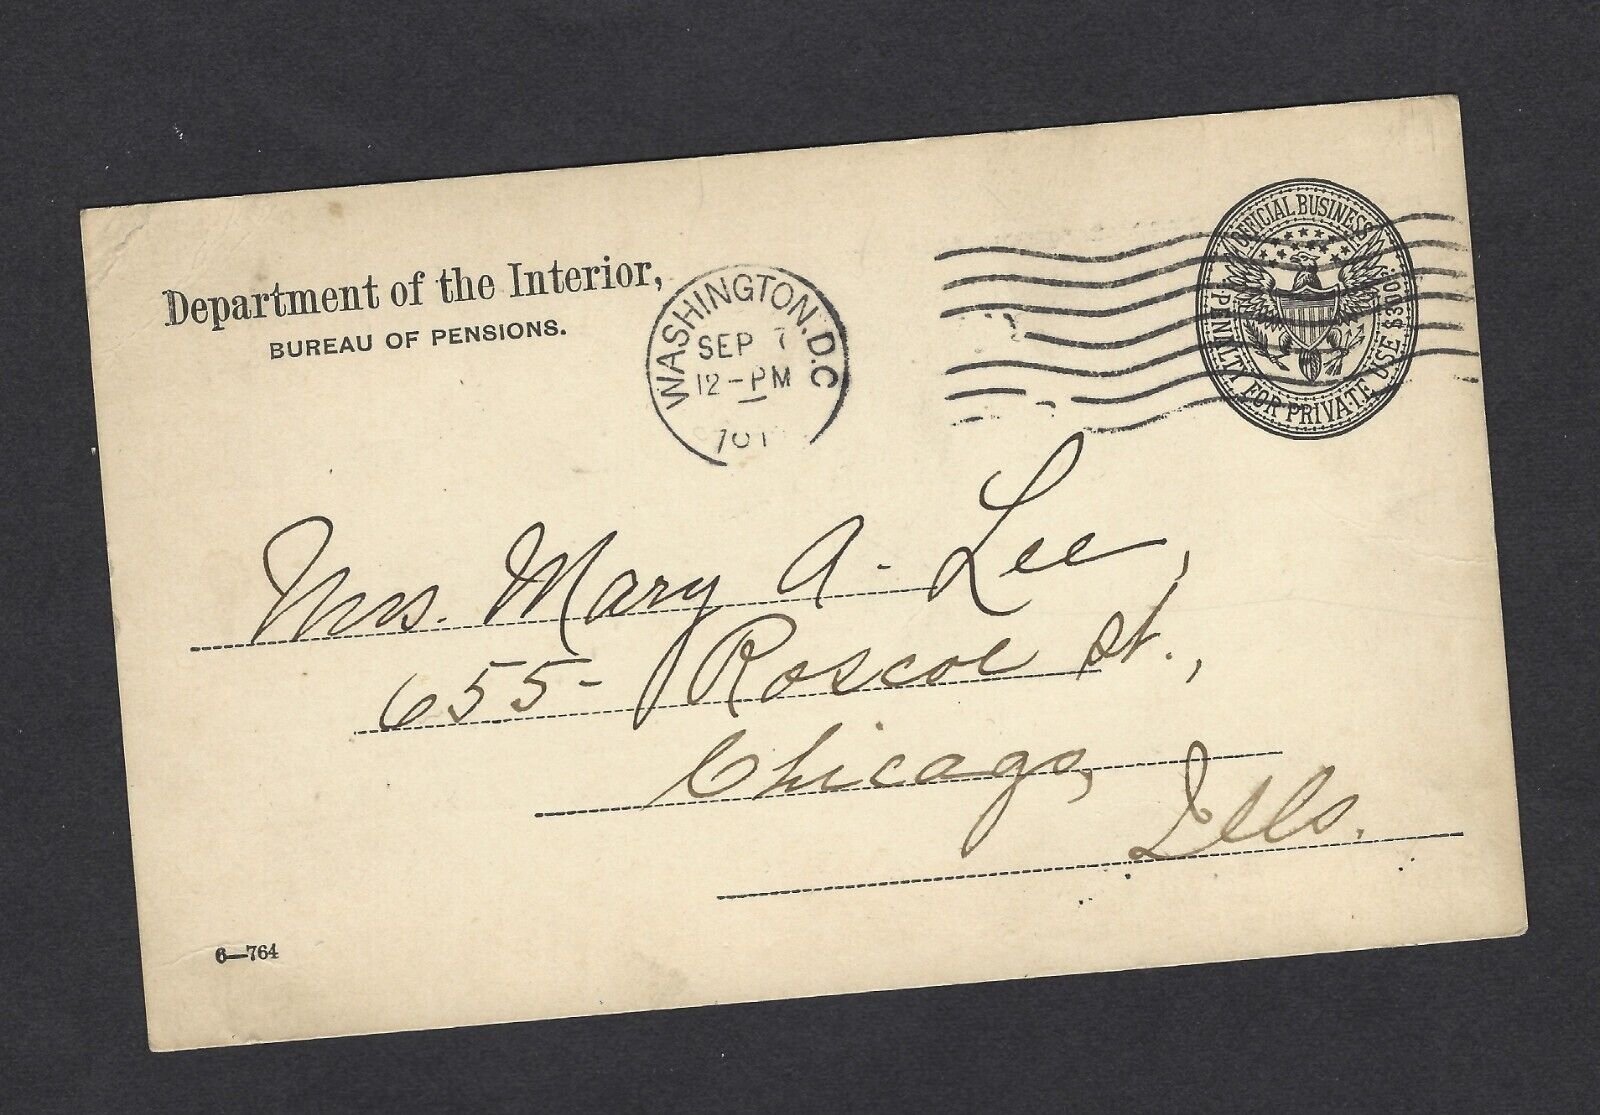 Department of the Interior,
BUREAU OF PENSIONS.
WASHINGTON. D.C
SEP 7
12-PM
OFFICIAL BUSINESS
PENALTY FOR PRIVATE USE $300.
Mrs. Mary A. Lee,
655- Roscoe St.,
Chicago,
Ills.
6—764